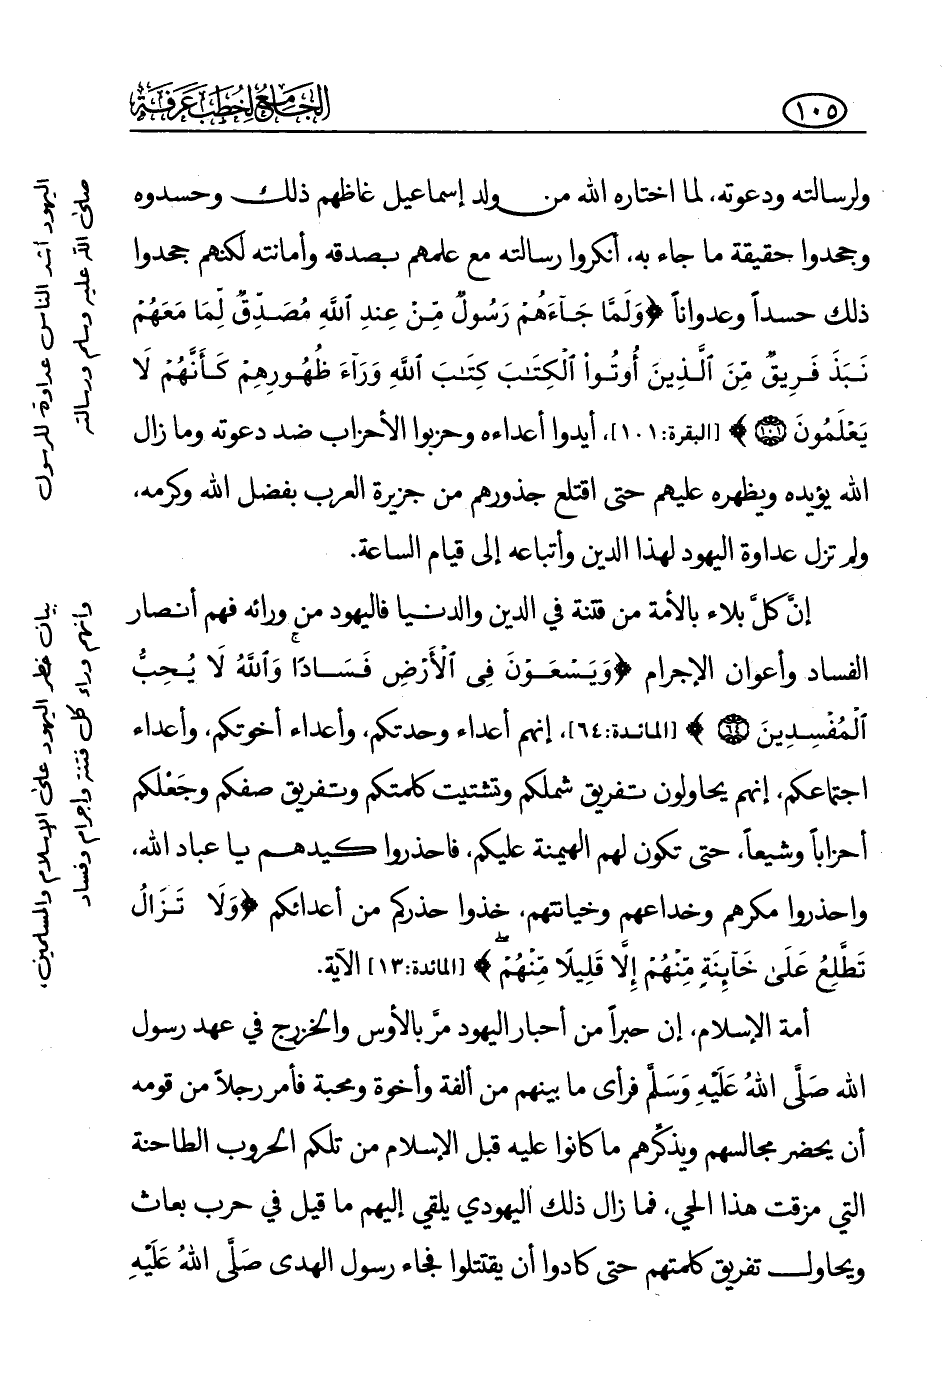 الجامع لخطب عرفة
١٠٥
ولرسالته ودعوته، لما اختاره الله من ولد إسماعيل غاظهم ذلك وحسدوه
وجحدوا حقيقة ما جاء به، أنكروا رسالته مع علمهم بصدقه وأمانته لكنهم جحدوا
ذلك حسداً وعدواناً ﴿وَلَمَّا جَآءَهُمْ رَسُولٌ مِّنْ عِندِ ٱللَّهِ مُصَدِّقٌ لِّمَا مَعَهُمْ
نَبَذَ فَرِيقٌ مِّنَ ٱلَّذِينَ أُوتُوا۟ ٱلْكِتَـٰبَ كِتَـٰبَ ٱللَّهِ وَرَآءَ ظُهُورِهِمْ كَأَنَّهُمْ لَا
يَعْلَمُونَ ١٠١﴾ [البقرة:١٠١]، أيدوا أعداءه وحزبوا الأحزاب ضد دعوته وما زال
الله يؤيده ويظهره عليهم حتى اقتلع جذورهم من جزيرة العرب بفضل الله وكرمه،
ولم تزل عداوة اليهود لهذا الدين وأتباعه إلى قيام الساعة.
إنَّ كلَّ بلاء بالأمة من فتنة في الدين والدنيا فاليهود من ورائه فهم أنصار
الفساد وأعوان الإجرام ﴿وَيَسْعَوْنَ فِى ٱلْأَرْضِ فَسَادًا ۚ وَٱللَّهُ لَا يُحِبُّ
ٱلْمُفْسِدِينَ ٦٤﴾ [المائدة:٦٤]، إنهم أعداء وحدتكم، وأعداء أخوتكم، وأعداء
اجتماعكم، إنهم يحاولون تفريق شملكم وتشتيت كلمتكم وتفريق صفكم وجَعْلكم
أحزاباً وشيعاً، حتى تكون لهم الهيمنة عليكم، فاحذروا كيدهم يا عباد الله،
واحذروا مكرهم وخداعهم وخيانتهم، خذوا حذركم من أعدائكم ﴿وَلَا تَزَالُ
تَطَّلِعُ عَلَىٰ خَآئِنَةٍ مِّنْهُمْ إِلَّا قَلِيلًا مِّنْهُمْ ۖ﴾ [المائدة:١٣] الآية.
أمة الإسلام، إن حبراً من أحبار اليهود مرَّ بالأوس والخزرج في عهد رسول
الله صَلَّى اللهُ عَلَيْهِ وَسَلَّم فرأى ما بينهم من ألفة وأخوة ومحبة فأمر رجلاً من قومه
أن يحضر مجالسهم ويذكّرهم ما كانوا عليه قبل الإسلام من تلكم الحروب الطاحنة
التي مزقت هذا الحي، فما زال ذلك اليهودي يلقي إليهم ما قيل في حرب بعاث
ويحاول تفريق كلمتهم حتى كادوا أن يقتتلوا فجاء رسول الهدى صَلَّى اللهُ عَلَيْهِ
اليهود أشد الناس عداوة للرسول
صلى الله عليه وسلم ورسالته
بيان خطر اليهود على الإسلام والمسلمين،
وأنهم وراء كل فتنة وإجرام وفساد